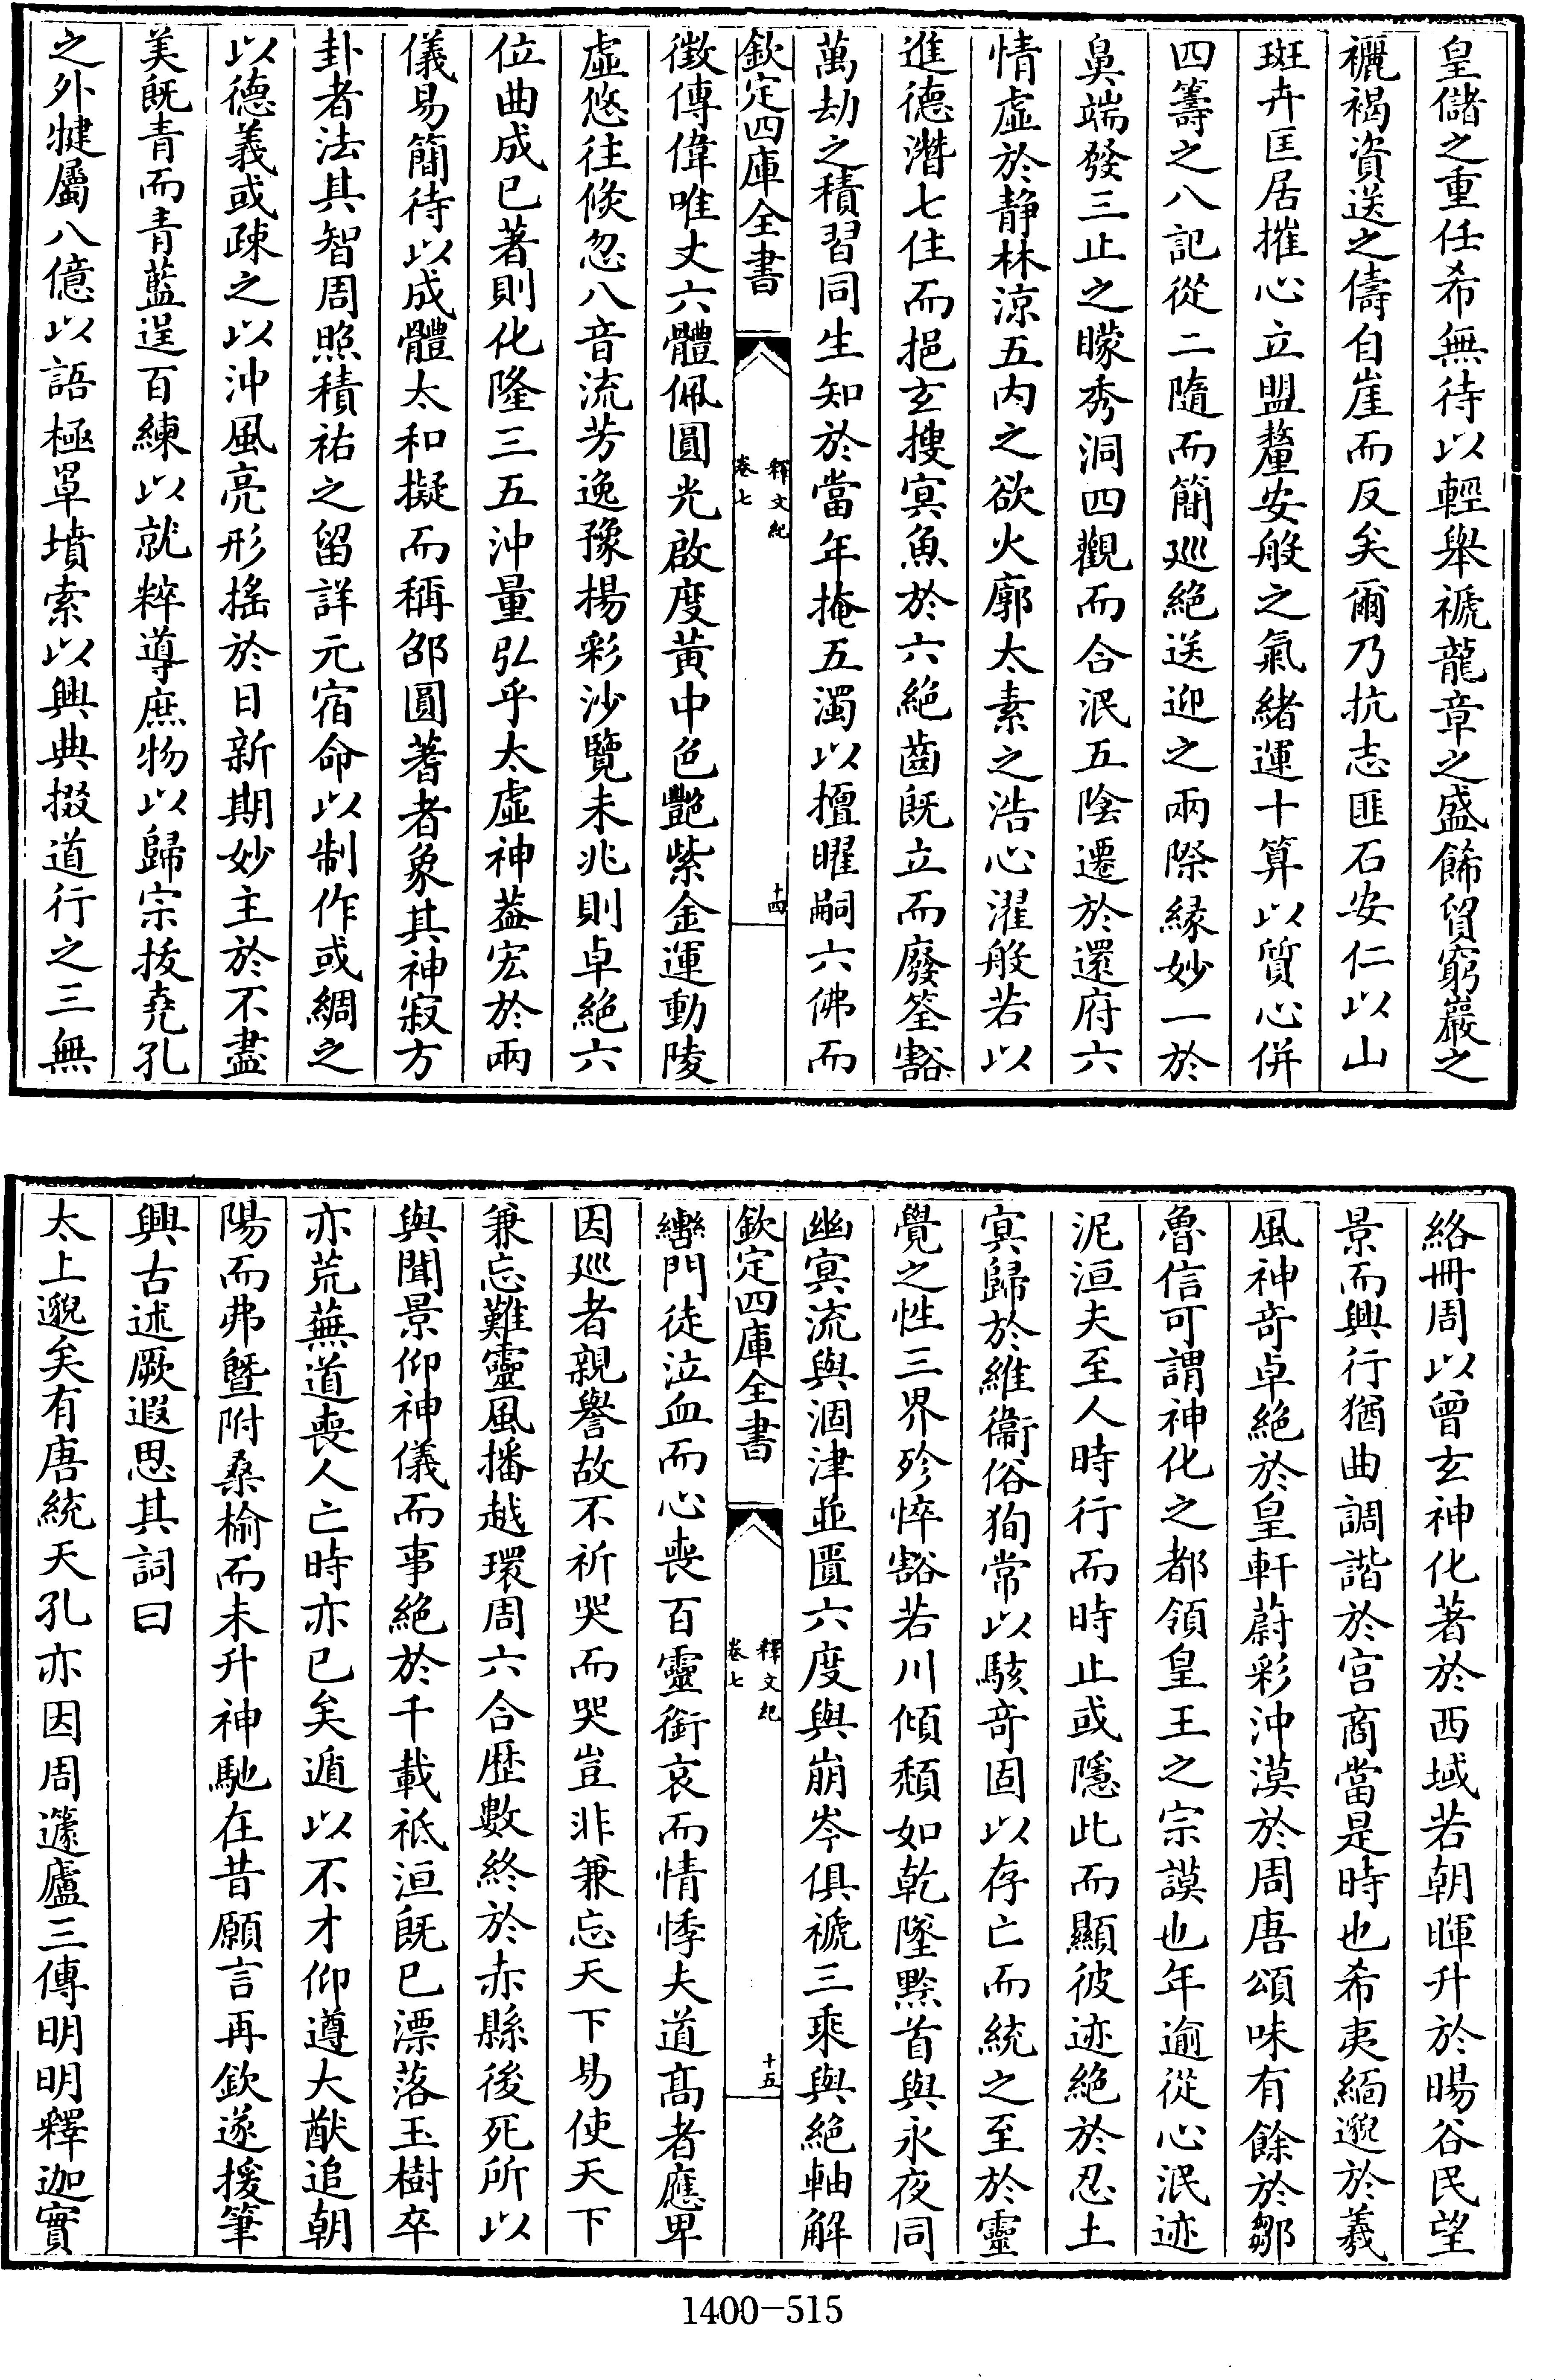 皇儲之重任希無待以輕舉禠龍章之盛飾貿窮巖之
襹褐資送之儔自崖而反矣爾乃抗志匪石安仁以山
斑卉匡居摧心立盟釐安般之氣緒運十算以質心併
四籌之八記從二隨而簡巡絕送迎之兩際緣妙一於
鼻端發三止之矇秀洞四觀而合泯五陰遷於還府六
情虛於靜林涼五内之欲火廓太素之浩心濯般若以
進德潛七住而挹玄搜冥魚於六絕齒既立而廢筌豁
萬劫之積習同生知於當年掩五濁以擅曜嗣六佛而
欽定四庫全書
釋文紀
卷七
十四
徴傳偉唯丈六體佩圓光啟度黃中色艷紫金運動陵
虛悠往倐忽八音流芳逸豫揚彩沙覽未兆則卓絕六
位曲成已著則化隆三五沖量弘乎太虛神葢宏於兩
儀易簡待以成體太和擬而稱邵圓蓍者象其神寂方
卦者法其智周照積祐之留詳元宿命以制作或綢之
以德義或疎之以沖風亮形搖於日新期妙主於不盡
美既青而青藍逞百練以就粹導庶物以歸宗拔堯孔
之外犍屬八億以語極罩墳索以興典掇道行之三無
絡冊周以曾玄神化著於西域若朝暉升於暘谷民望
景而興行猶曲調諧於宫商當是時也希夷緬邈於羲
風神奇卓絕於皇軒蔚彩沖漠於周唐頌味有餘於鄒
魯信可謂神化之都領皇王之宗謨也年逾從心泯迹
泥洹夫至人時行而時止或隱此而顯彼迹絕於忍土
冥歸於維衞俗狥常以駭奇固以存亡而統之至於靈
覺之性三界殄悴豁若川傾頹如乾墜黔首與永夜同
幽冥流與涸津並匱六度與崩岑俱禠三乘與絕軸解
欽定四庫全書
釋文紀
卷七
十五
轡門徒泣血而心喪百靈銜哀而情悸夫道髙者應卑
因巡者親譽故不祈哭而哭豈非兼忘天下易使天下
兼忘難靈風播越環周六合歴數終於赤縣後死所以
與聞景仰神儀而事絕於千載祇洹既已漂落玉樹卒
亦荒蕪道喪人亡時亦已矣遁以不才仰遵大猷追朝
陽而弗曁附桑榆而未升神馳在昔願言再欽遂援筆
興古述厥遐思其詞曰
太上邈矣有唐統天孔亦因周蘧廬三傳明明釋迦實
1400-515